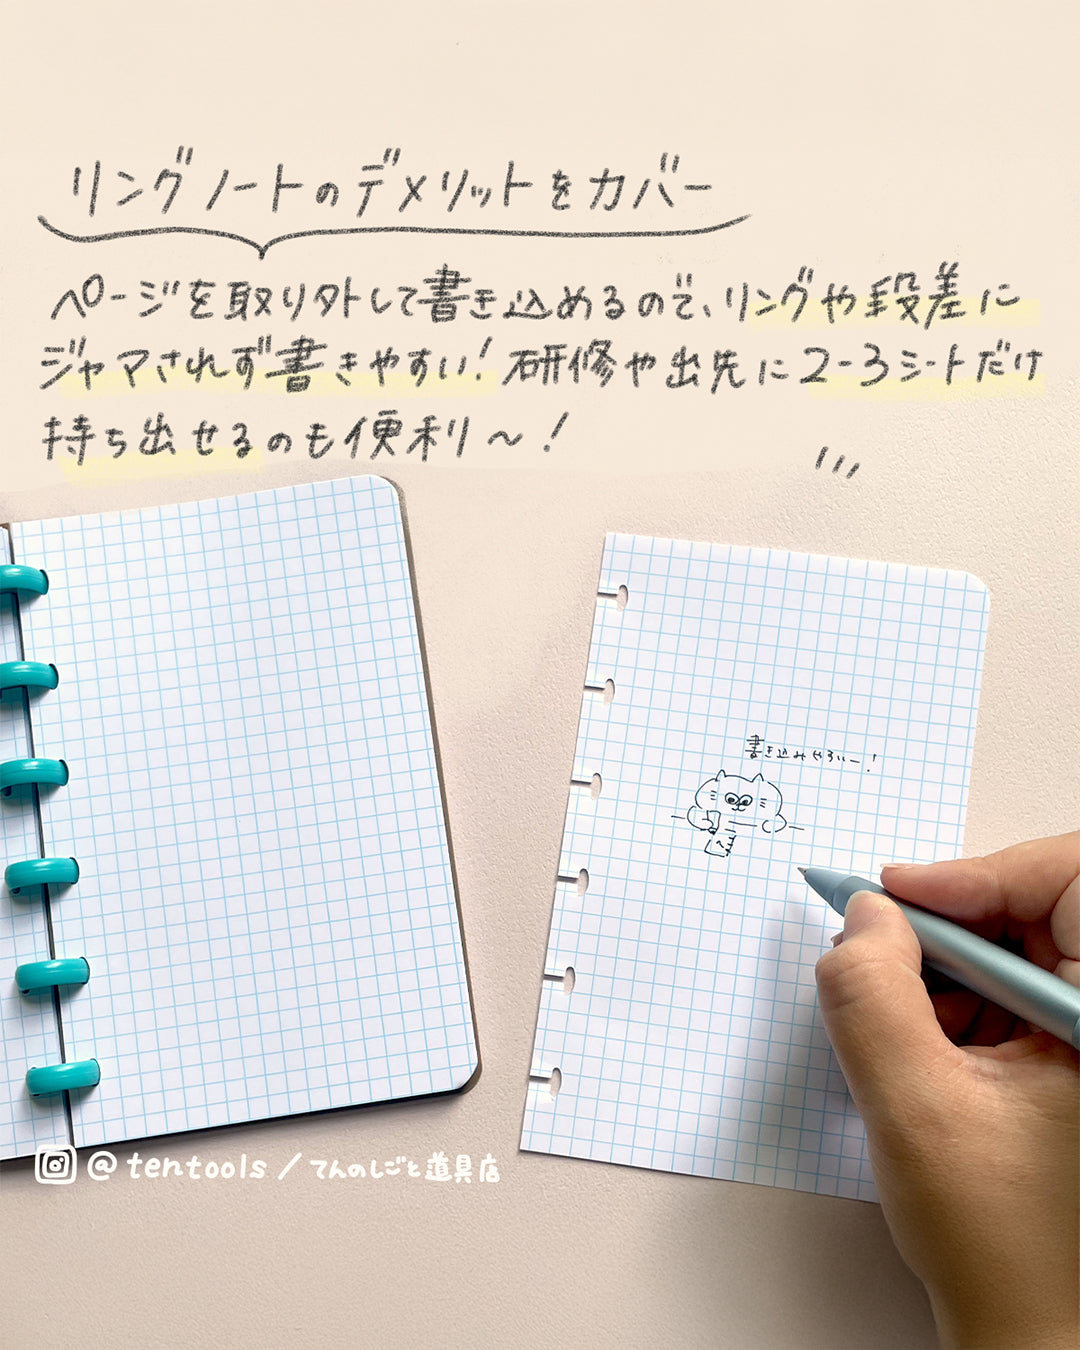 リングノートのデメリットをカバー
ページを取り外して書き込めるので、リングや段差に
ジャマされず書きやすい！研修や出先に2-3シートだけ
持ち出せるのも便利～！
書き込みやすいー！
@tentools/てんのしごと道具店